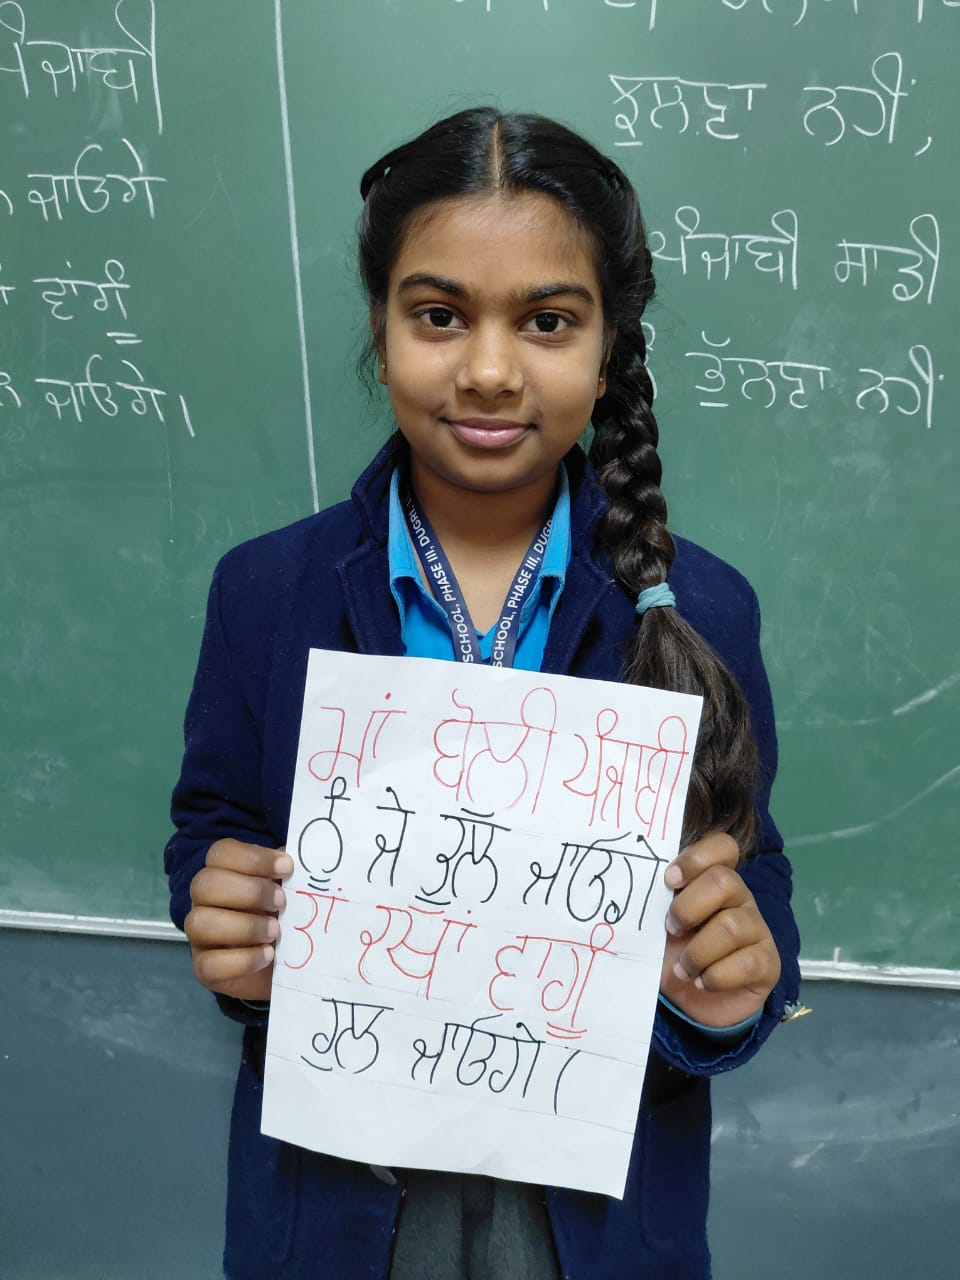 ਪੰਜਾਬੀ
ਜਾਓਗੇ
ਵਾਂਗੂੰ
ਜਾਓਗੇ।
ਝੁਲਣਾ ਨਹੀਂ,
ਪੰਜਾਬੀ ਸਾਡੀ
ਭੁੱਲਣਾ ਨਹੀਂ
SCHOOL, PHASE III, DUGRI,
SCHOOL, PHASE III, DUGR
ਮਾਂ ਬੋਲੀ ਪੰਜਾਬੀ
ਨੂੰ ਜੇ ਭੁਲੱ ਜਾਓਗੇ
ਤਾਂ ਕਖਾਂ ਵਾਗੂੰ
ਰੁਲ ਜਾਓਗੇ।